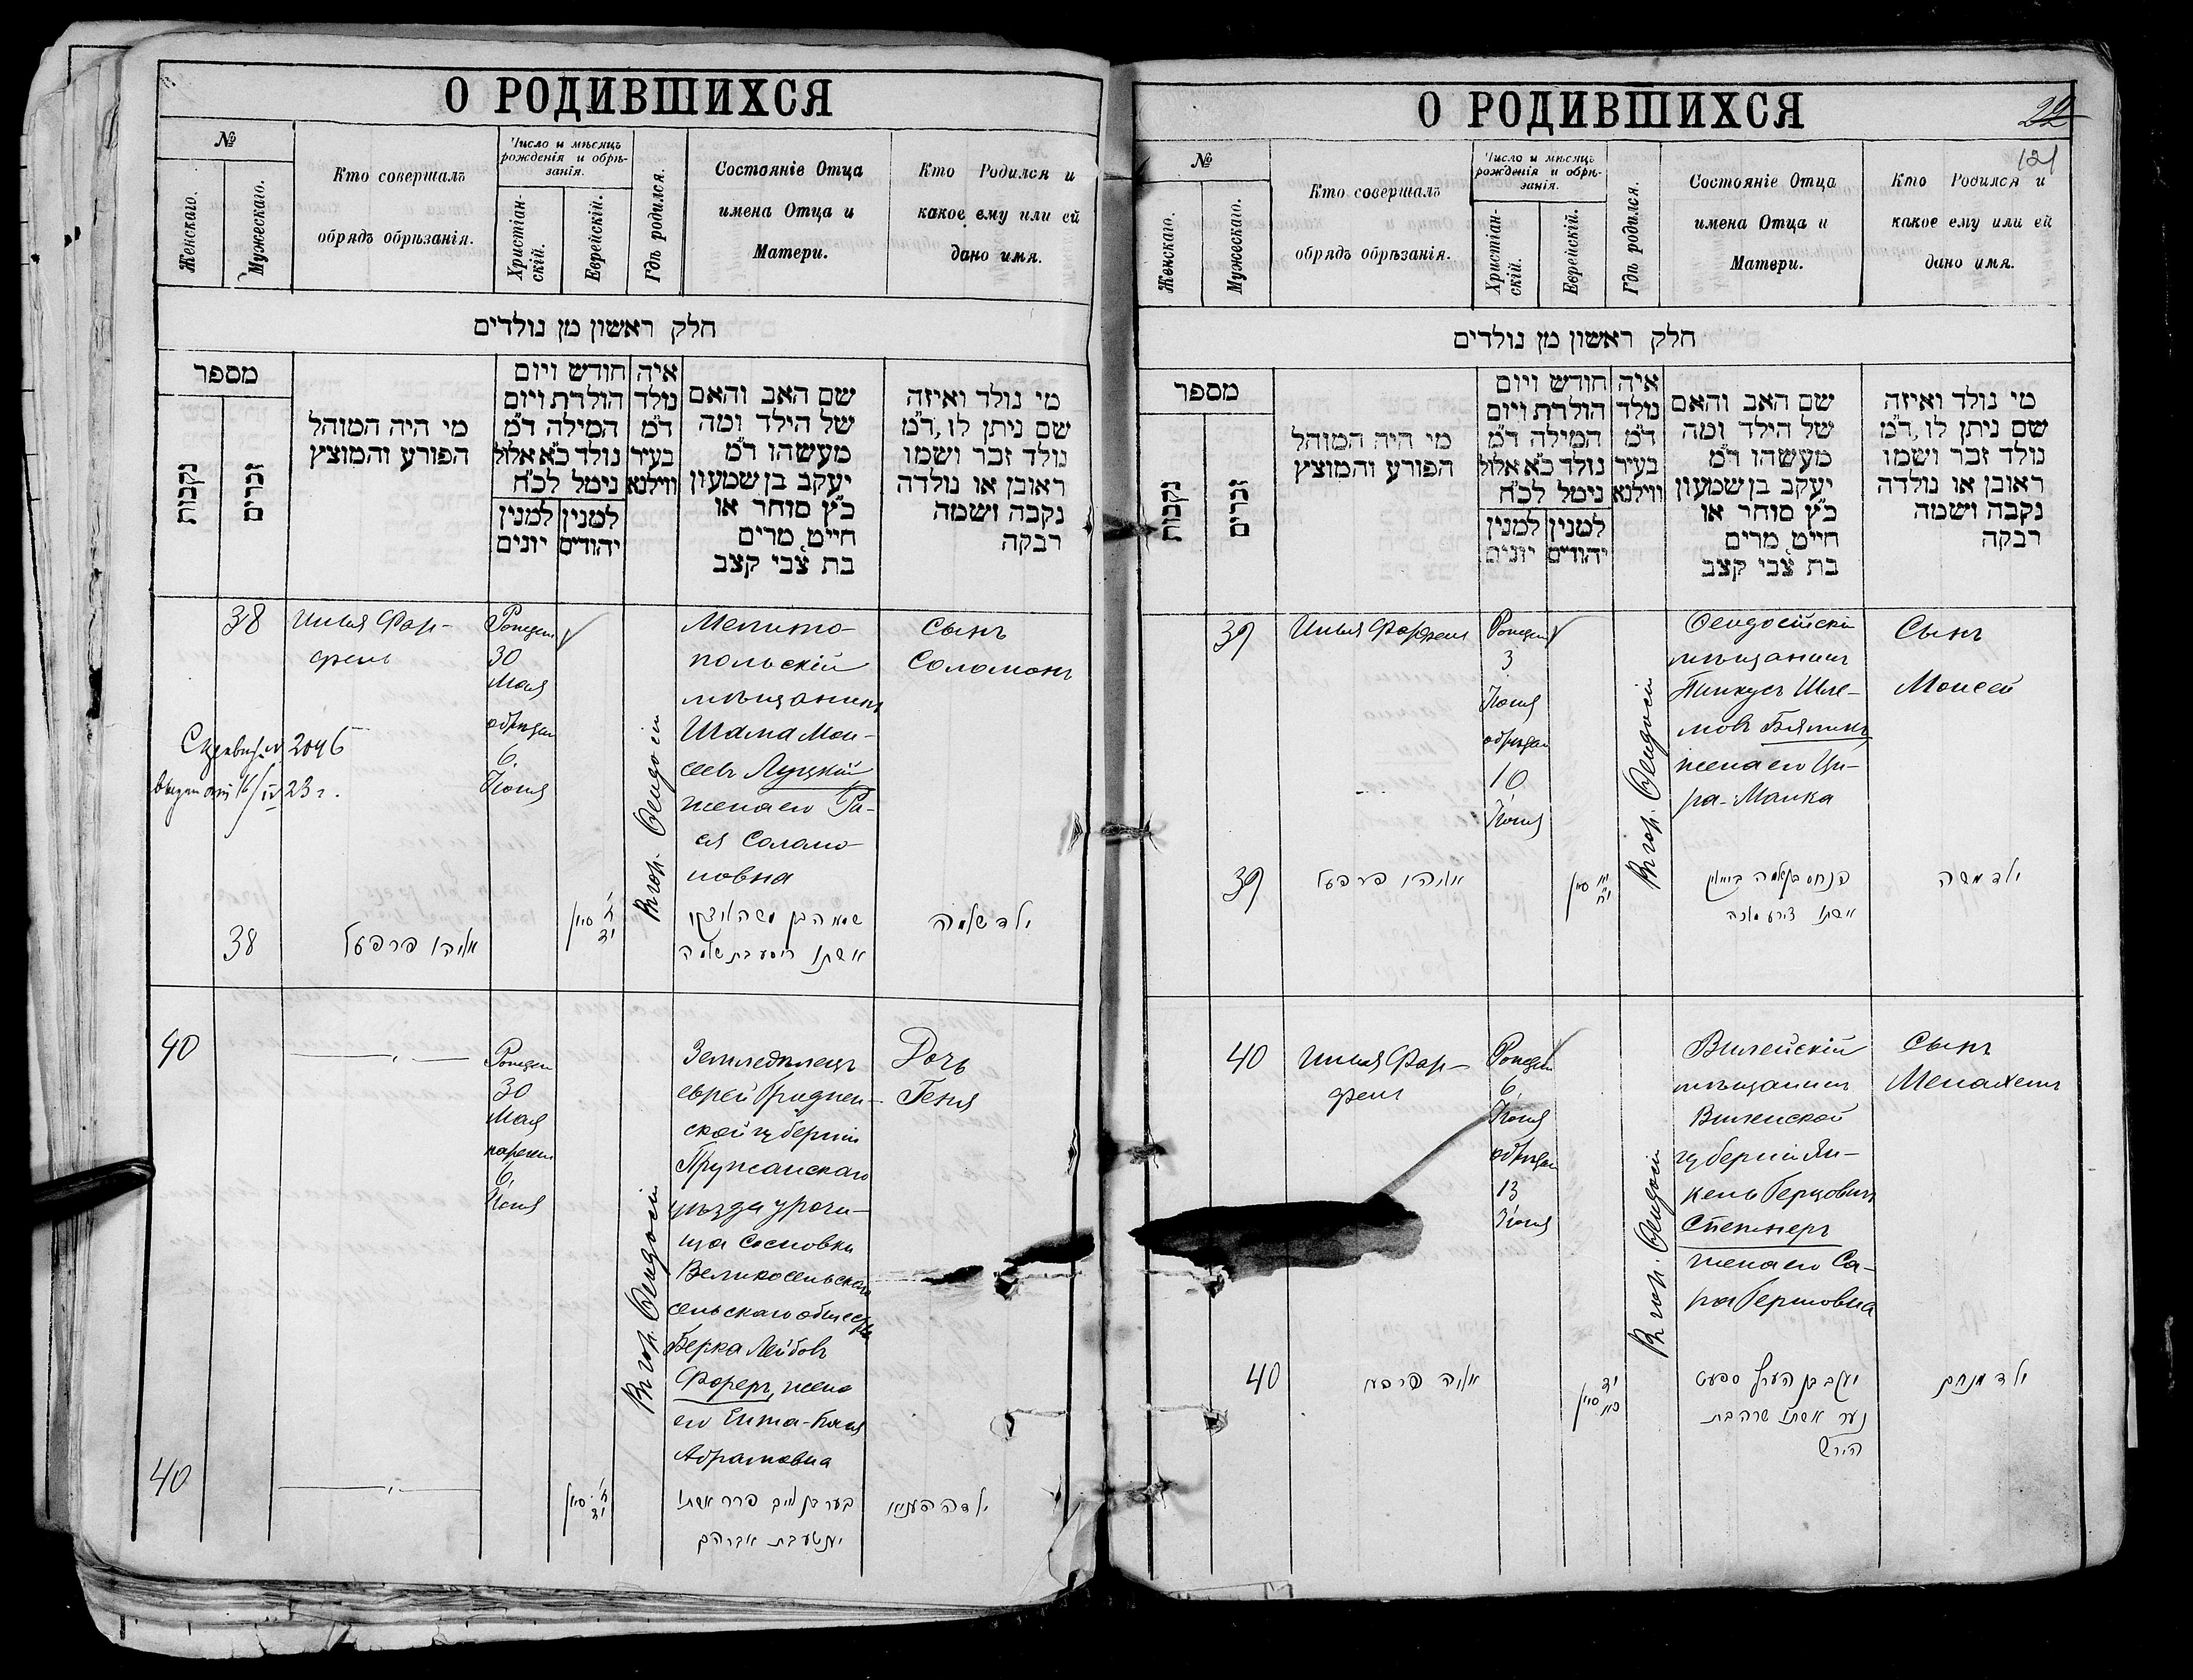 О РОДИВШИХСЯ
№
Женскаго.
Мужескаго.
Кто совершалъ
обрядъ обрѣзанія.
Число и мѣсяцъ
рожденія и обрѣ-
занія.
Христіан-
скій.
Еврейскій.
Гдѣ родился.
Состояніе Отца
имена Отца и
Матери.
Кто Родился и
какое ему или ей
дано имя.
חלק ראשון מן נולדים
מספר
נקבות
זכרים
מי היה המוהל
הפורע והמוצץ
חודש ויום
הולדת ויום
המילה ד״מ
נולד כ״א אלול
נימל לכ״ח
למנין
יונים
למנין
יהודים
איה
נולד
ד״מ
בעיר
ווילנא
שם האב והאם
של הילד ומה
מעשהו ד״מ
יעקב בן שמעון
כ״ץ סוחר או
חייט מרים
בת צבי קצב
מי נולד ואיזה
שם ניתן לו, ד״מ
נולד זכר ושמו
ראובן או נולדה
נקבה ושמה
רבקה
38
Илья Фар-
фель
30
Мая
6
Іюня
Въ гор. Ѳеодосіи
Мелито-
польскій
мѣщанинъ
Шама Мои-
сеевъ Луцкій
жена его Ра-
ся Соломо-
новна
Сынъ
Соломонъ
2046
23 г.
38
אליהו פרפעל
סיון
שמא בן משה לוצקי
אשתו ריסע בת שלמה
ילד שלמה
40
30
Мая
6
Іюня
Въ гор. Ѳеодосіи
Земледѣлецъ
еврей Гроднен-
ской губерніи
Пружанскаго
уѣзда урочи-
ща Сосновки
Великосельскаго
сельскаго общества
Берка Лейбовъ
Фореръ, жена
его Ента-Хая
Абрамовна
Дочь
Геня
40
סיון
בער בן ליב פרר אשתו
יענטע בת אברהם
ילדה העניא
О РОДИВШИХСЯ
22
121
№
Женскаго.
Мужескаго.
Кто совершалъ
обрядъ обрѣзанія.
Число и мѣсяцъ
рожденія и обрѣ-
занія.
Христіан-
скій.
Еврейскій.
Гдѣ родился.
Состояніе Отца
имена Отца и
Матери.
Кто Родился и
какое ему или ей
дано имя.
חלק ראשון מן נולדים
מספר
נקבות
זכרים
מי היה המוהל
הפורע והמוצץ
חודש ויום
הולדת ויום
המילה ד״מ
נולד כ״א אלול
נימל לכ״ח
למנין
יונים
למנין
יהודים
איה
נולד
ד״מ
בעיר
ווילנא
שם האב והאם
של הילד ומה
מעשהו ד״מ
יעקב בן שמעון
כ״ץ סוחר או
חייט מרים
בת צבי קצב
מי נולד ואיזה
שם ניתן לו, ד״מ
נולד זכר ושמו
ראובן או נולדה
נקבה ושמה
רבקה
39
Илья Фарфель
3
Іюня
10
Іюня
Въ гор. Ѳеодосіи
Ѳеодосійскій
мѣщанинъ
Пинкусъ Шле-
мовъ Бялинъ,
жена его Ци-
ра-Малка
Сынъ
Моисей
39
אליהו פרפעל
סיון
פנחס בן שלמה
אשתו צירע מלכה
ילד משה
40
Илья Фар-
фель
6
Іюня
13
Іюня
Въ гор. Ѳеодосіи
Вилейскій
мѣщанинъ
Виленской
губерніи Ян-
кель Герцовичъ
жена его Са-
ра Гершовна
Сынъ
Менахемъ
40
אליה פרפעל
סיון
יעקב בן הערץ
אשתו שרה בת
הירש
ילד מנחם